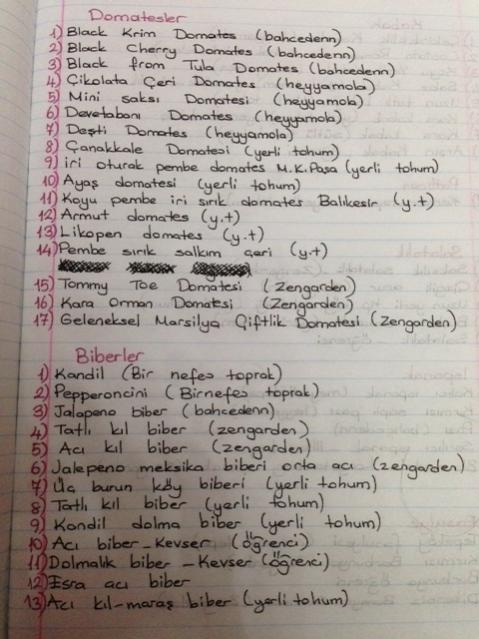 Domatesler
1) Black Krim Domates (bahcedenn)
2) Black Cherry Domates (bahcedenn)
3) Black from Tula Domates (bahcedenn)
4) Çikolata Çeri Domates (heyyamola)
5) Mini saksı Domatesi (heyyamola)
6) Devetabanı Domates (heyyamola)
7) Deşti Domates (heyyamola)
8) Çanakkale Domatesi (yerli tohum)
9) iri oturak pembe domates M.K.Paşa (yerli tohum)
10) Ayaş domatesi (yerli tohum)
11) Koyu pembe iri sırık domates Balıkesir (y.t)
12) Armut domates (y.t)
13) Likopen domates (y.t)
14) Pembe sırık salkım çeri (y.t)
15) Tommy Toe Domatesi (Zengarden)
16) Kara Orman Domatesi (Zengarden)
17) Geleneksel Marsilya Çiftlik Domatesi (Zengarden)
Biberler
1) Kandil (Bir nefes toprak)
2) Pepperoncini (Birnefes toprak)
3) Jalapeno biber (bahcedenn)
4) Tatlı kıl biber (zengarden)
5) Acı kıl biber (zengarden)
6) Jalepeno meksika biberi orta acı (zengarden)
7) Üç burun köy biberi (yerli tohum)
8) Tatlı kıl biber (yerli tohum)
9) Kandil dolma biber (yerli tohum)
10) Acı biber - Kevser (öğrenci)
11) Dolmalık biber - Kevser (öğrenci)
12) Esra acı biber
13) Acı kıl-maraş biber (yerli tohum)